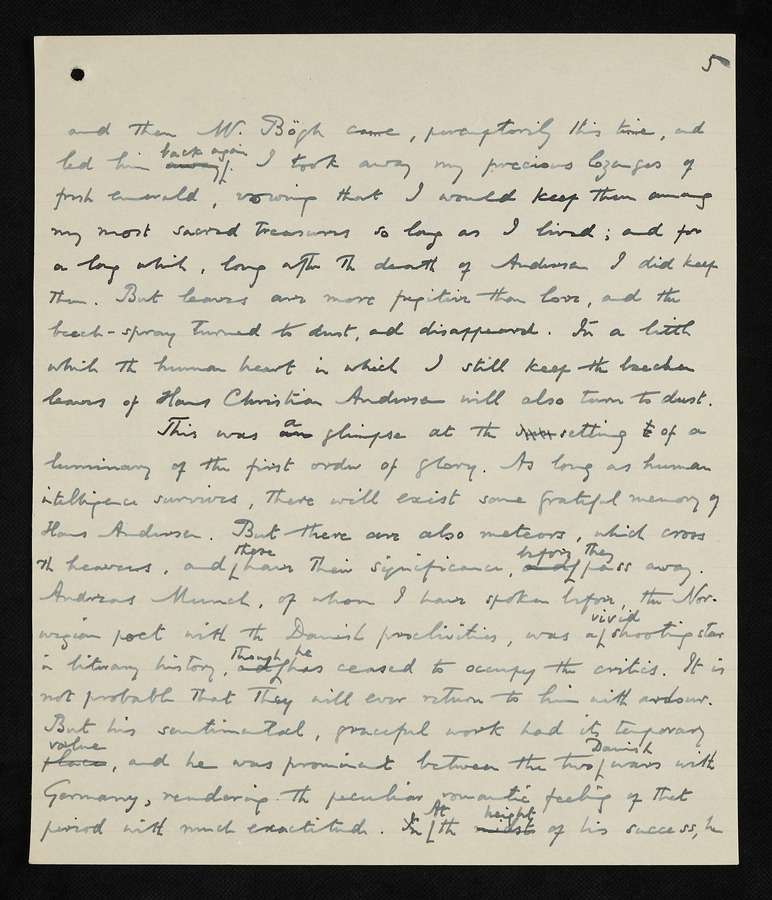 5
and then Mr. Bögh came, peremptorily this time, and
led him away back again. I took away my precious lozenges of
fresh emerald, vowing that I would keep them among
my most sacred treasures so long as I lived; and for
a long while, long after the death of Andersen I did keep
them. But leaves are more fugitive than love, and the
beech-spray turned to dust, and disappeared. In a little
while the human heart in which I still keep the beechen
leaves of Hans Christian Andersen will also turn to dust.
This was an a glimpse at the setting of a
luminary of the first order of glory. As long as human
intelligence survives, there will exist some grateful memory of
Hans Andersen. But there are also meteors, which cross
the heavens, and these have their significance, and before they pass away.
Andreas Munch, of whom I have spoken before, the Nor-
wegian poet with the Danish proclivities, was a vivid shooting star
in literary history, and though he has ceased to occupy the critics. It is
not probable that they will ever return to him with ardour.
But his sentimental, graceful work had its temporary
place value, and he was prominent between the two Danish wars with
Germany, rendering the peculiar romantic feeling of that
period with much exactitude. In At the midst height of his success, he